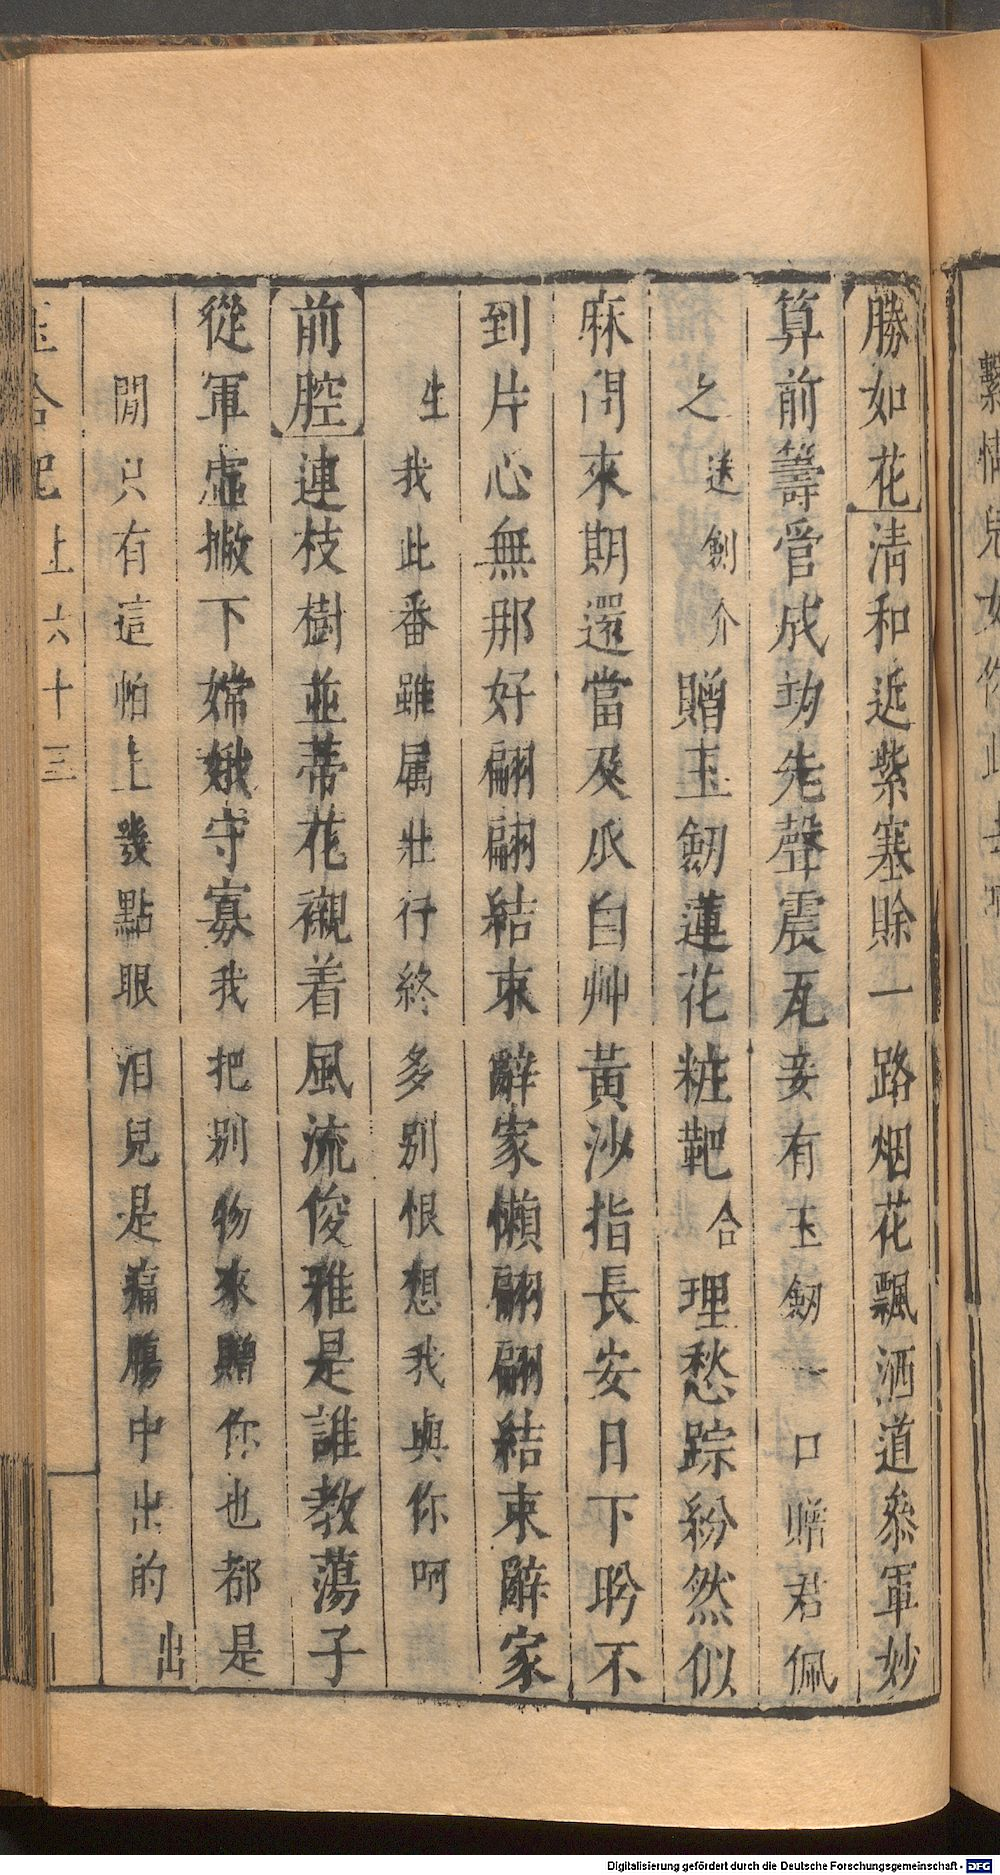 勝如花清和近紫塞賒一路烟花飄洒道叅軍妙
算前籌管成功先聲震瓦妾有玉劒一口贈君佩
之送劍介贈玉劒蓮花粧靶合理愁踪紛然似
麻問來期還當及瓜白艸黃沙指長安日下盻不
到片心無那好翩翩結束辭家懶翩翩結束辭家
生我此番雖属壯行終多别恨想我與你呵
前腔連枝樹並蒂花襯着風流俊雅是誰教蕩子
從軍虛撇下嫦娥守寡我把别物來贈你也都是
閒只有這帕上幾點眼泪兒是痛膓中出的出
玉合記上六十三
Digitalisierung gefördert durch die Deutsche Forschungsgemeinschaft - DFG